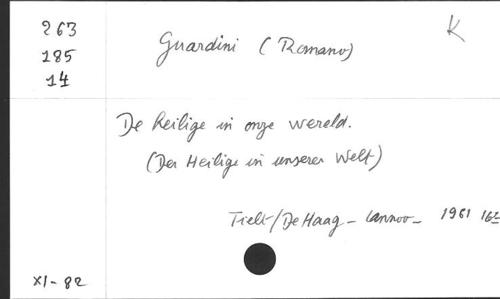 263
185
14
Guardini (Romano)
K
De heilige in onze wereld.
(Der Heilige in unserer Welt)
Tielt/De Haag - Lannoo - 1961
XI-82